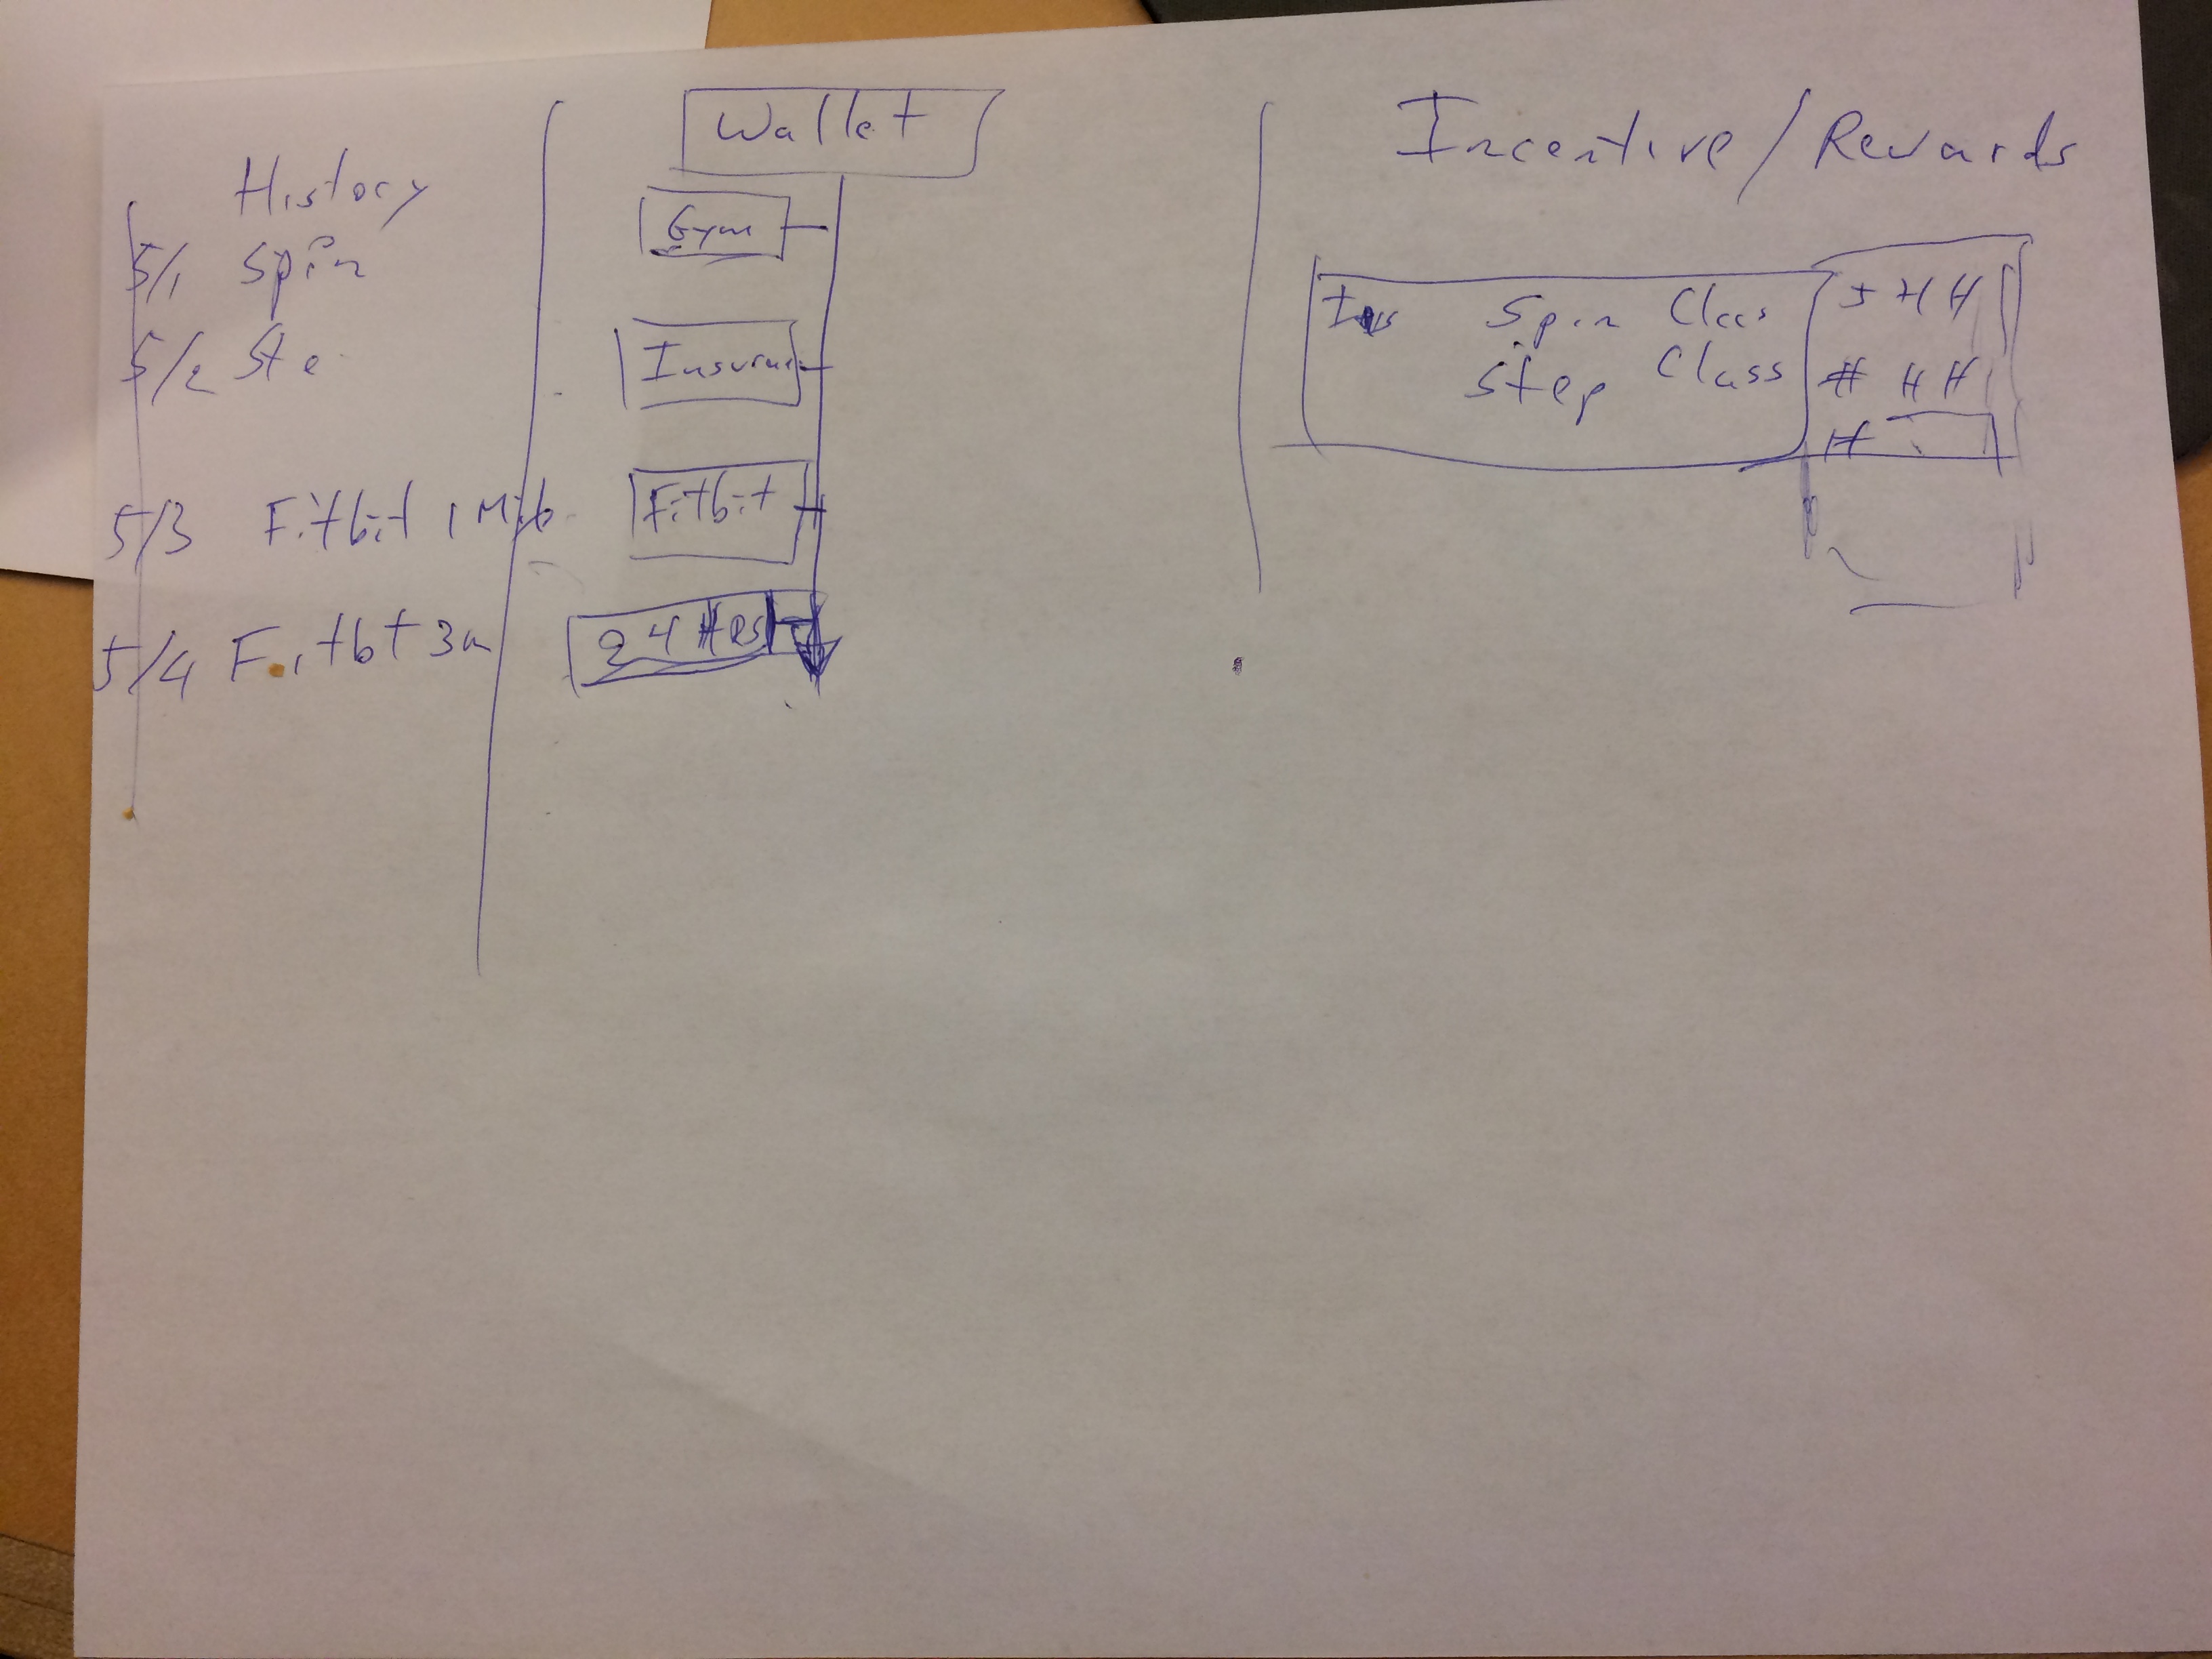 History
5/1 Spin
5/2 Ste
5/3 Fitbit 1 Mile
5/4 Fitbt 3m
Wallet
Gym
Insuran
Fitbit
Incentive/Rewards
Ins Spin Class
Step Class